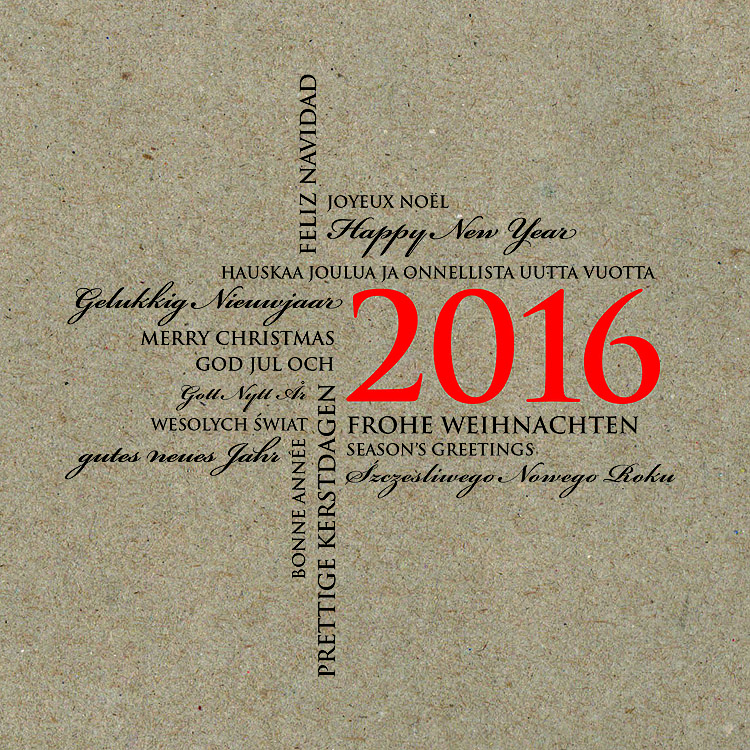 FELIZ NAVIDAD
JOYEUX NOËL
Happy New Year
HAUSKAA JOULUA JA ONNELLISTA UUTTA VUOTTA
Gelukkig Nieuwjaar
2016
MERRY CHRISTMAS
GOD JUL OCH
Gott Nytt År
WESOLYCH ŚWIAT
gutes neues Jahr
BONNE ANNÉE
PRETTIGE KERSTDAGEN
FROHE WEIHNACHTEN
SEASON'S GREETINGS
Szczęsliwego Nowego Roku